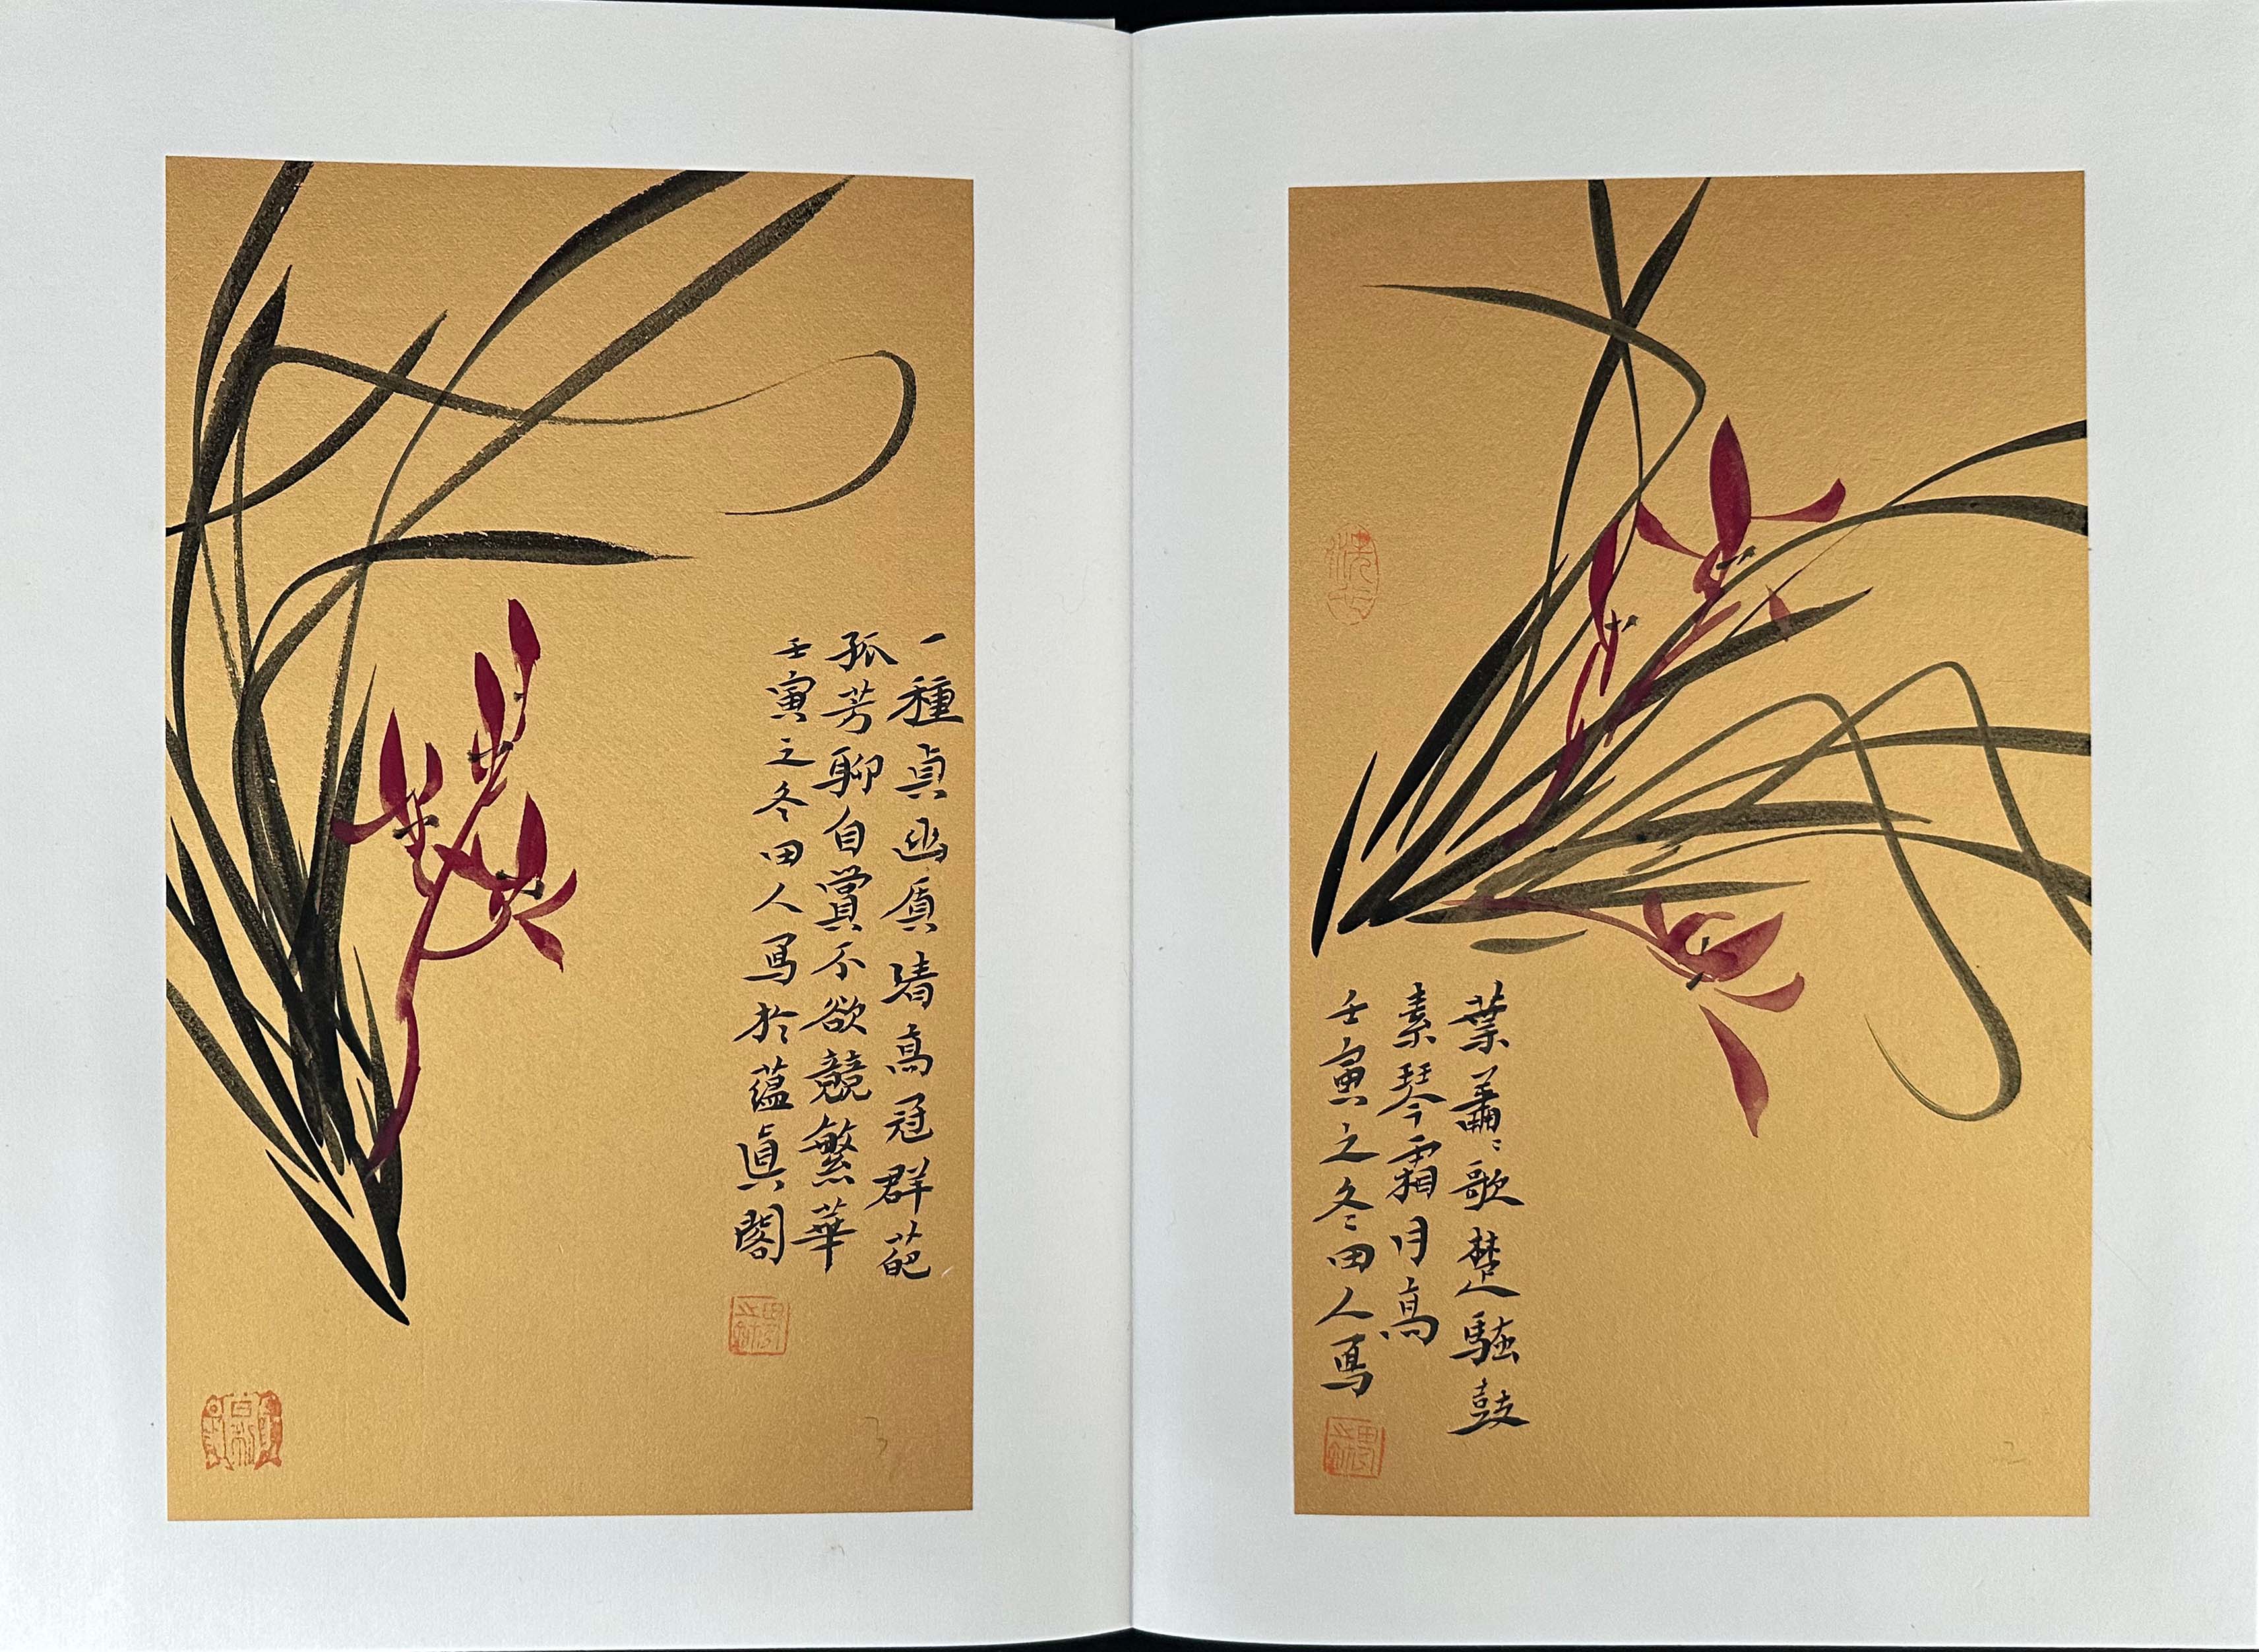 葉蕭〻歌楚騷鼓
素琴霜月高
壬寅之冬田人寫
2
一種貞幽質清高冠群葩
孤芳聊自賞不欲競繁華
壬寅之冬田人寫於蘊眞閣
3